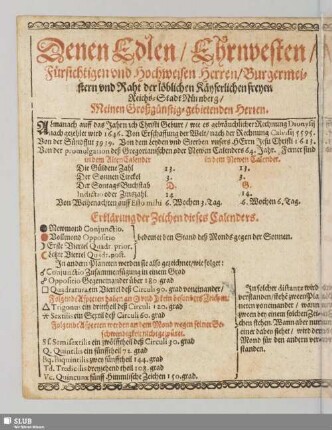 Denen Edlen / Ehrnvesten /
Fürsichtigen vnd Hochweisen Herren / Burgermei-
stern vnd Raht der löblichen Käyserlichen freyen
Reichs-Stadt Nürnberg /
Meinen Großgünstig-gebietenden Herren.
Almanach auff das Jahr nach Christi Geburt / wie es gebräuchlicher Rechnung Dionysij
nach gezehlet wird 1646. Von Erschaffung der Welt / nach der Rechnung Calvisij 5595.
Von der Sündflut 3939. Von dem Leyden vnd Sterben vnsers HErrn Jesu Christi 1613.
Von der promulgation deß Gregorianischen oder Newen Calenders 64. Jahr. Ferner sind
in dem Alten Calender in dem Newen Calender.
Die Güldene Zahl 13. 13.
Der Sonnen Circkel 3. 3.
Der Sontags Buchstab D. G.
Indictio oder Zinszahl 14. 14.
Von Weihenachten auff Esto mihi 6. Wochen 3. Tag. 6. Wochen 6. Tag.
Erklärung der Zeichen dieses Calenders.
Newmond Conjunctio.
Vollmond Oppositio
Erste Viertel Quadr. prior.
Letzte Viertel Quadr. post.
bedeutet den Stand deß Monds gegen der Sonnen.
In andern Planeten werden sie also gezeichnet / wie folget:
☌ Conjunctio Zusammenfügung in einem Grad
☍ Oppositio Gegeneinander über 180. grad
□ Quadratura ein Viertel deß Circuls 90. grad voneinander /
△ Trigonus ein drittheil deß Circuls 120. grad.
⚹ Sextilis ein Sextil deß Circuls 60. grad.
Folgende Aspecten werden an dem Mond wegen seiner Ge-
schwindigkeit nicht gezeichnet
SS. Semisextilis ein zwölfftheil deß Circuls 30. grad
Q. Quintilis ein fünfftheil 72. grad
Bq. Biquintilis zwey fünfftheil 144. grad
Td. Tredecilis dreyzehend theil 108. grad
Vc. Quincunx fünff Himmlische Zeichen 150. grad.
In solcher distantz wird
SLUB
Wir führen Wissen.